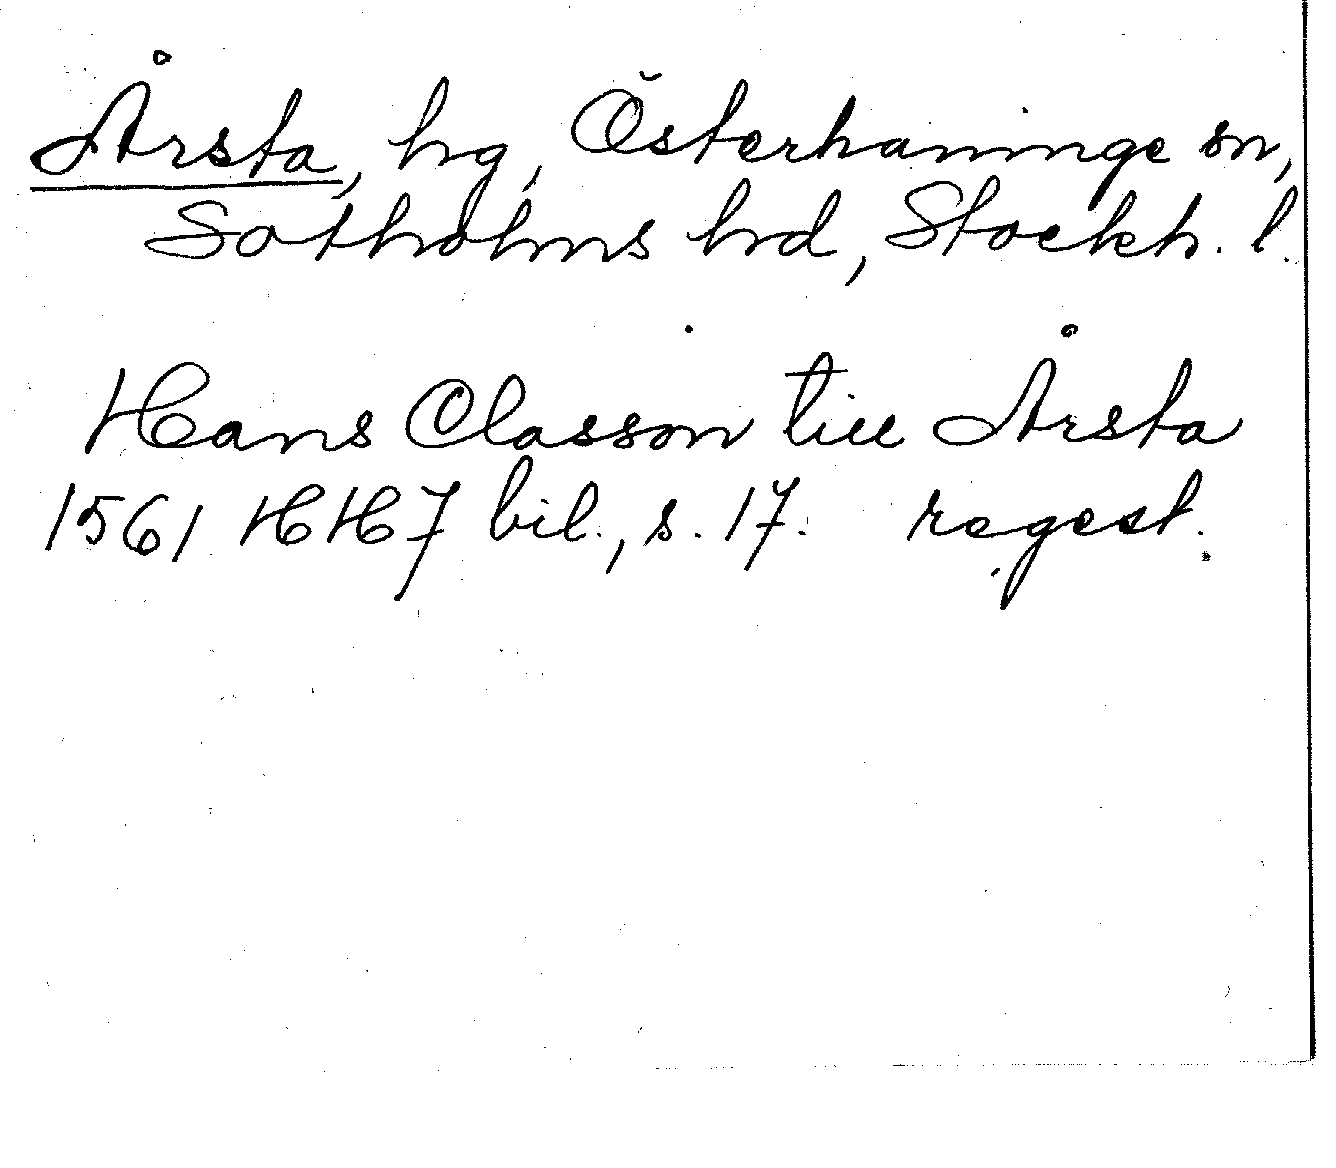 Årsta, hg, Österhaninge sn,
Sotholms hd, Stockh. l.
Hans Classon till Årsta
1561 HH7 bil., s. 17. regest.